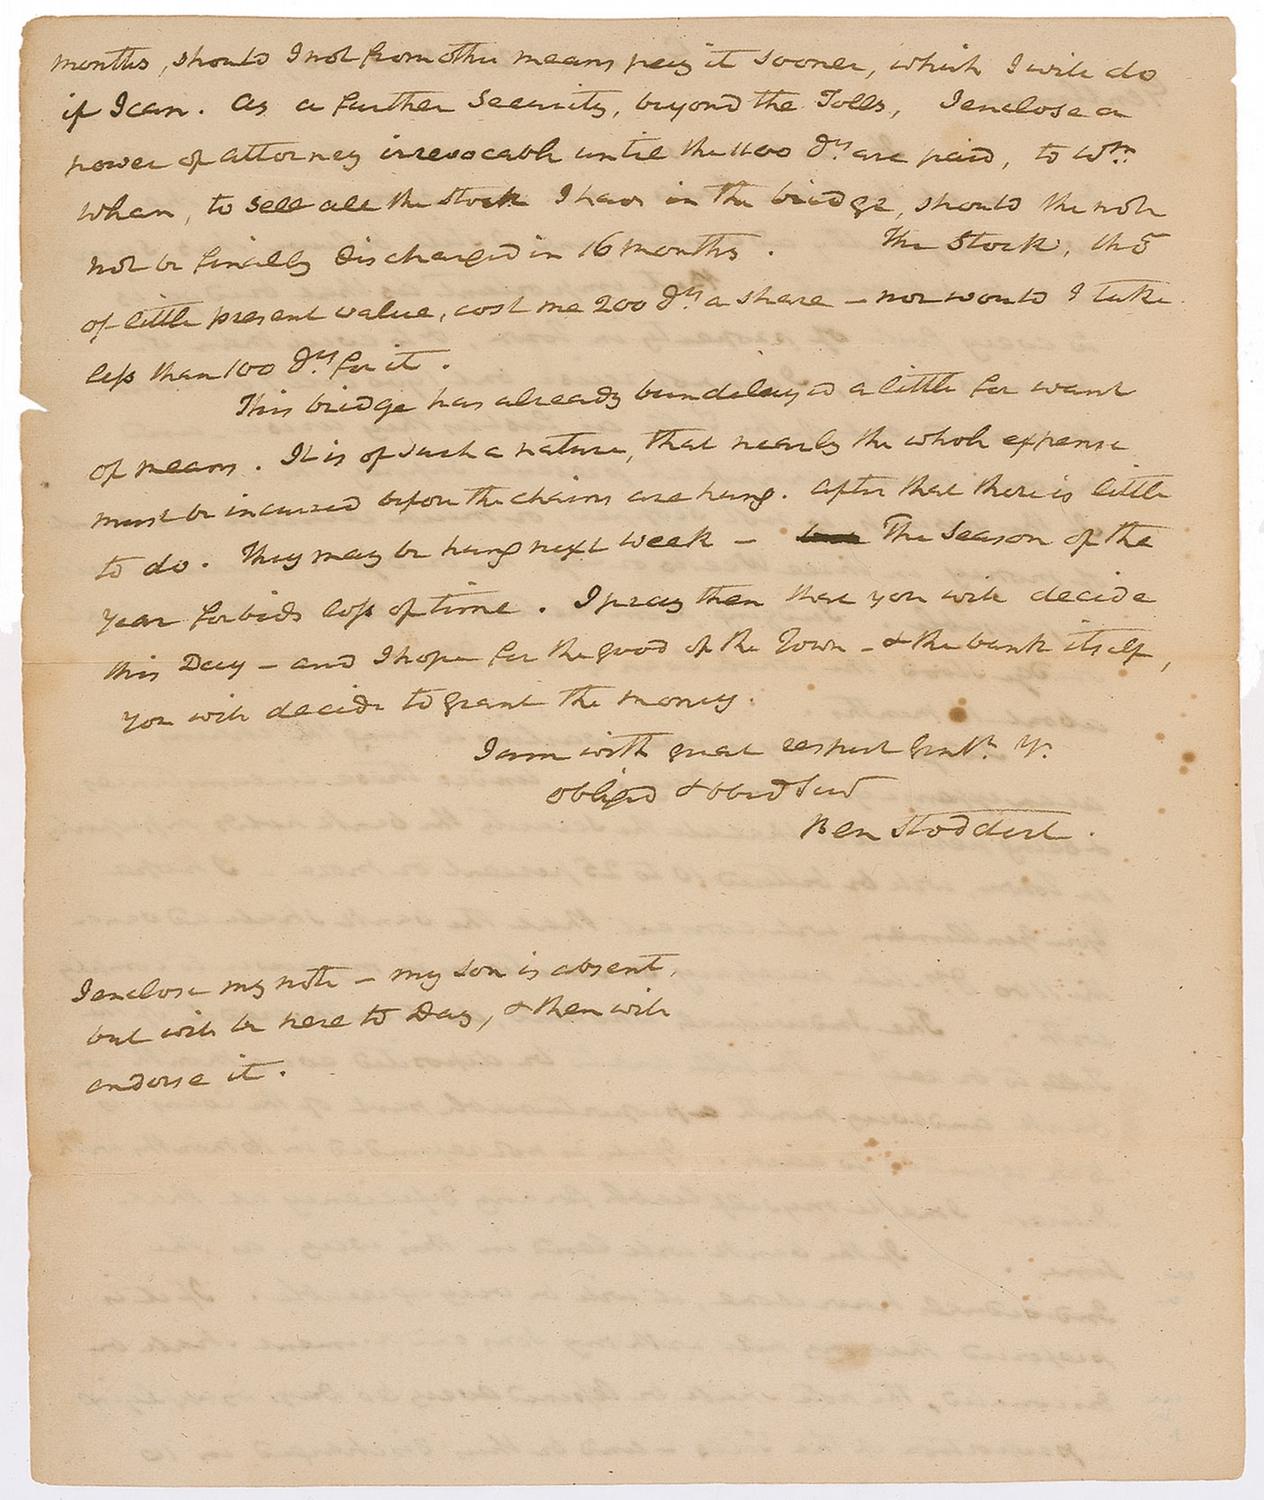 months, should I not from other means pay it sooner, which I will do
if I can. As a further Security, beyond the Tolls, I enclose a
power of attorney irrevocable until the 1100 Drs are paid, to Wm.
Whan, to sell all the Stock I have in the bridge, should the note
not be finally discharged in 16 months. The Stock, tho
of little present value, cost me 200 Drs a share - nor would I take
less than 100 Drs for it.
This bridge has already been delayed a little for want
of means. It is of such a nature, that nearly the whole expense
must be incurred before the chains are hung. After that there is little
to do. They may be hung next week - The Season of the
year forbids loss of time. I pray then that you will decide
this Day - and I hope for the good of the Town - & the bank itself,
you will decide to grant the money.
I am with great respect Gentn. Yr.
obliged & obed Servt
Ben Stoddert.
I enclose my note - my son is absent,
but will be here to Day, & then will
endorse it.